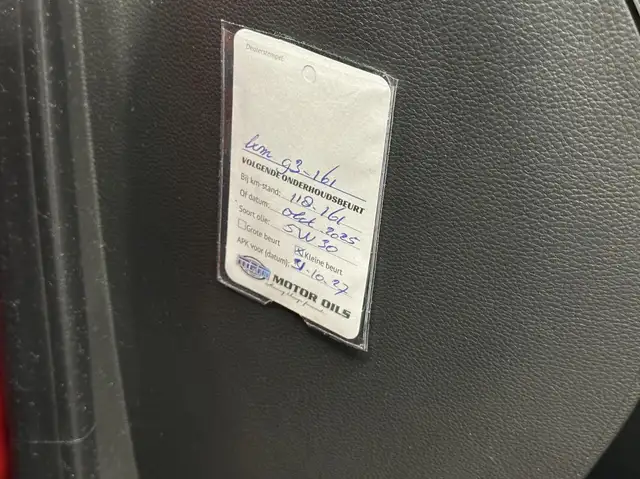 Dealerstempel:
km 93-161
VOLGENDE ONDERHOUDSBEURT
Bij km-stand: 118-161
Of datum: okt 2025
Soort olie: 5W30
Grote beurt Kleine beurt
APK voor (datum): 31-10-27
MOTOR OILS